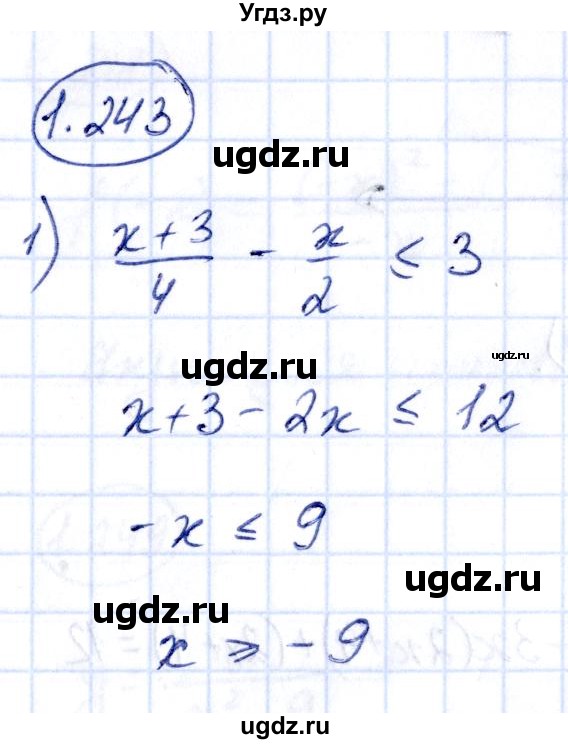 Угдз.ру
1.243
ugdz.ru
1) (x+3)/4 - x/2 ≤ 3
ugdz.ru
ugdz.ru
x+3-2x ≤ 12
-x ≤ 9
ugdz.ru
ugdz.ru
x ≥ -9
ugdz.ru